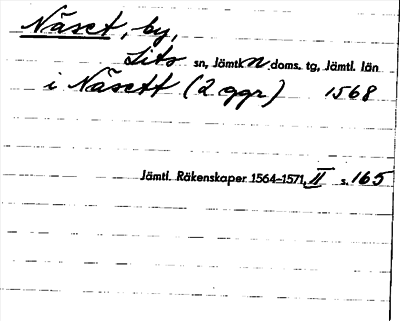 Näset, by,
Lits sn, Jämtk n. doms. tg, Jämtl. län
i Näsett (2 ggr) 1568
Jämtl. Räkenskaper 1564-1571, II s. 165